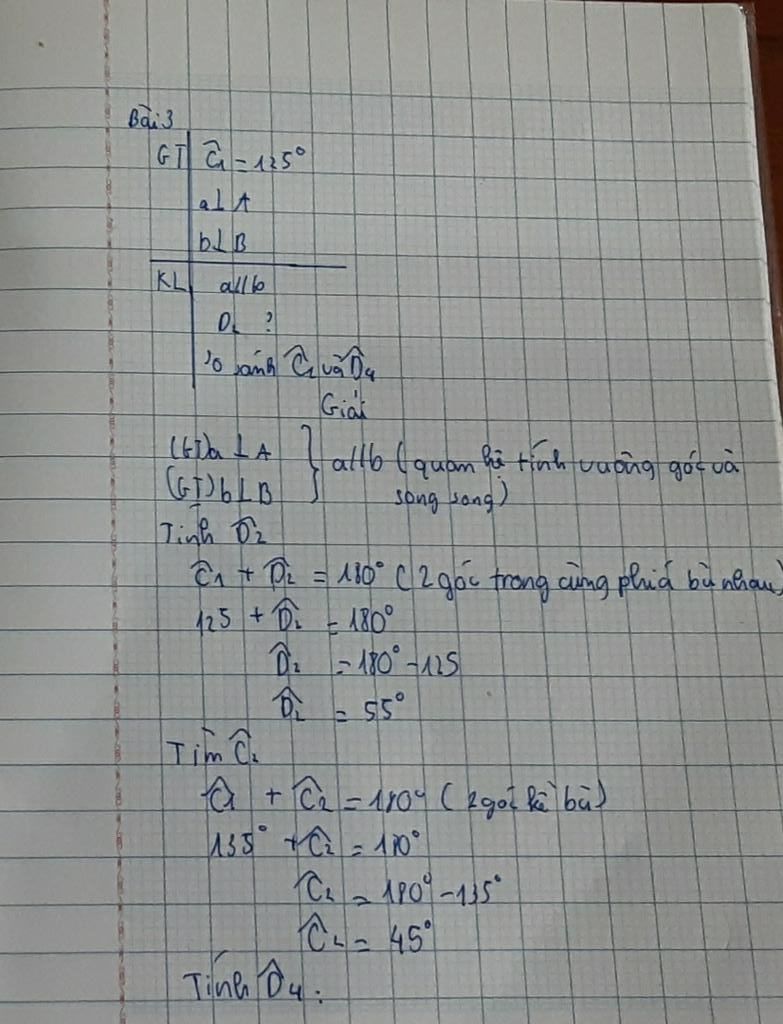 Bài 3
GT Ĉ1 = 125°
a⊥A
b⊥B
KL a//b
D2 ?
so sánh Ĉ2 và D̂4
Giải
(GT) a ⊥ A } a//b (quan hệ tính vuông góc và
(GT) b⊥B song song)
Tính D̂2
Ĉ1 + D̂2 = 180° (2 góc trong cùng phiá bù nhau)
125 + D̂2 = 180°
D̂2 = 180° - 125
D̂2 = 55°
Tìm Ĉ2
Ĉ1 + Ĉ2 = 180° (2 góc kề bù)
135° + Ĉ2 = 180°
Ĉ2 = 180° - 135°
Ĉ2 = 45°
Tính D̂4 :